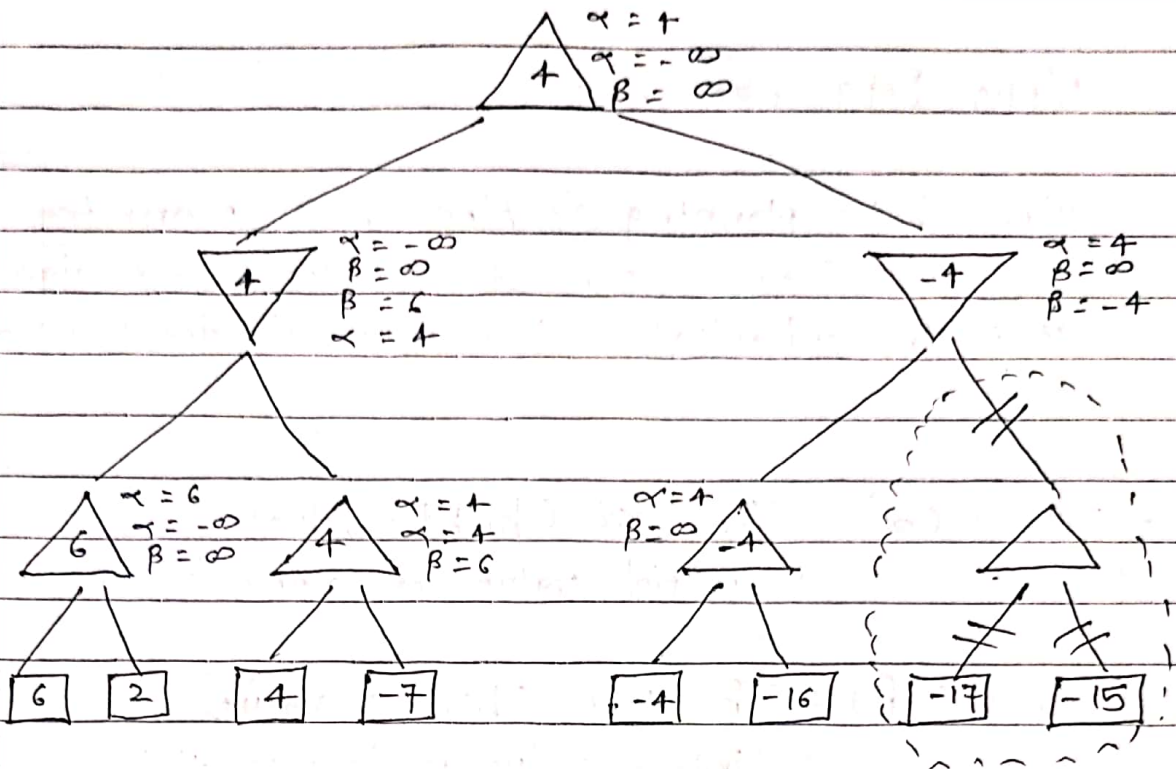 α = 4
α = - ∞
β = ∞
4
α = - ∞
β = ∞
β = 6
α = 4
4
α = 4
β = ∞
β = - 4
-4
α = 6
α = -∞
β = ∞
6
α = 4
α = 4
β = 6
4
α = 4
β = ∞
-4
6 2 4 -7 -4 -16 -17 -15